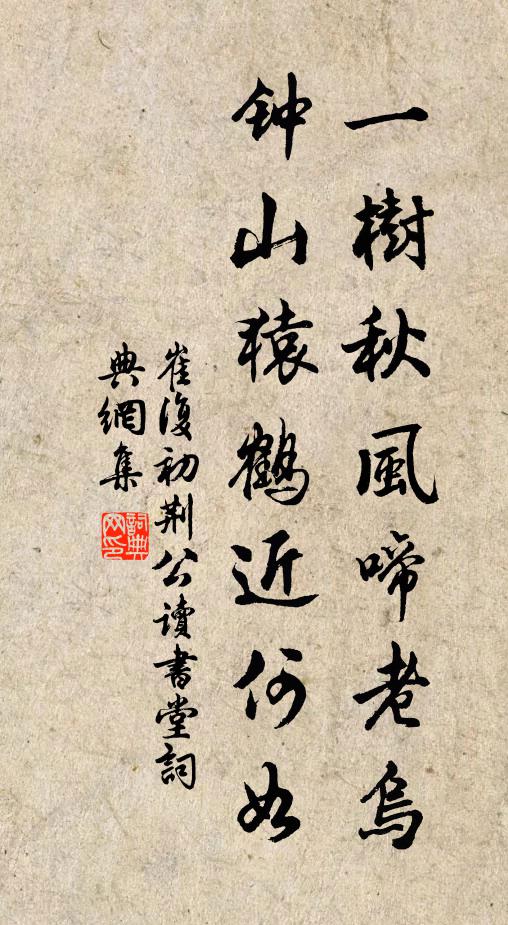 一樹秋風啼老烏
钟山猿鶴近何如
崔復初荆公讀書堂詞
典網集
詞典网印